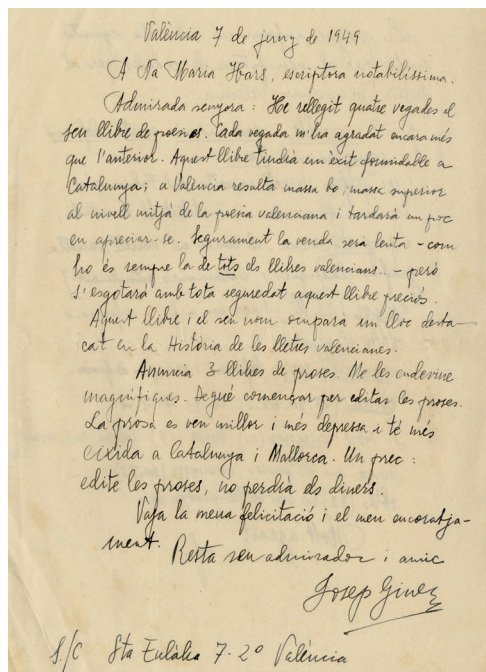 València 7 de juny de 1949
A Na Maria Ibars, escriptora notabilíssima.
Admirada senyora: He rellegit quatre vegades el
seu llibre de poemes. Cada vegada m'ha agradat encara més
que l'anterior. Aquest llibre tindria un èxit formidable a
Catalunya; a València resulta massa bo, massa superior
al nivell mitjà de la poesia valenciana i tardarà un poc
en apreciar-se. Segurament la venda serà lenta - com
ho és sempre la de tots els llibres valencians.. - però
s'esgotarà amb tota seguredat aquest llibre preciós.
Aquest llibre i el seu nom ocuparà un lloc desta-
cat en la Història de les lletres valencianes.
Anuncia 3 llibres de proses. Me les endevine
magnífiques. Degué començar per editar les proses.
La prosa es ven millor i més depressa i té més
eixida a Catalunya i Mallorca. Un prec:
edite les proses, no perdrà els diners.
Vaja la meua felicitació i el meu encoratja-
ment. Resta seu admirador i amic
Josep Giner
S/C Sta Eulàlia 7-2º València